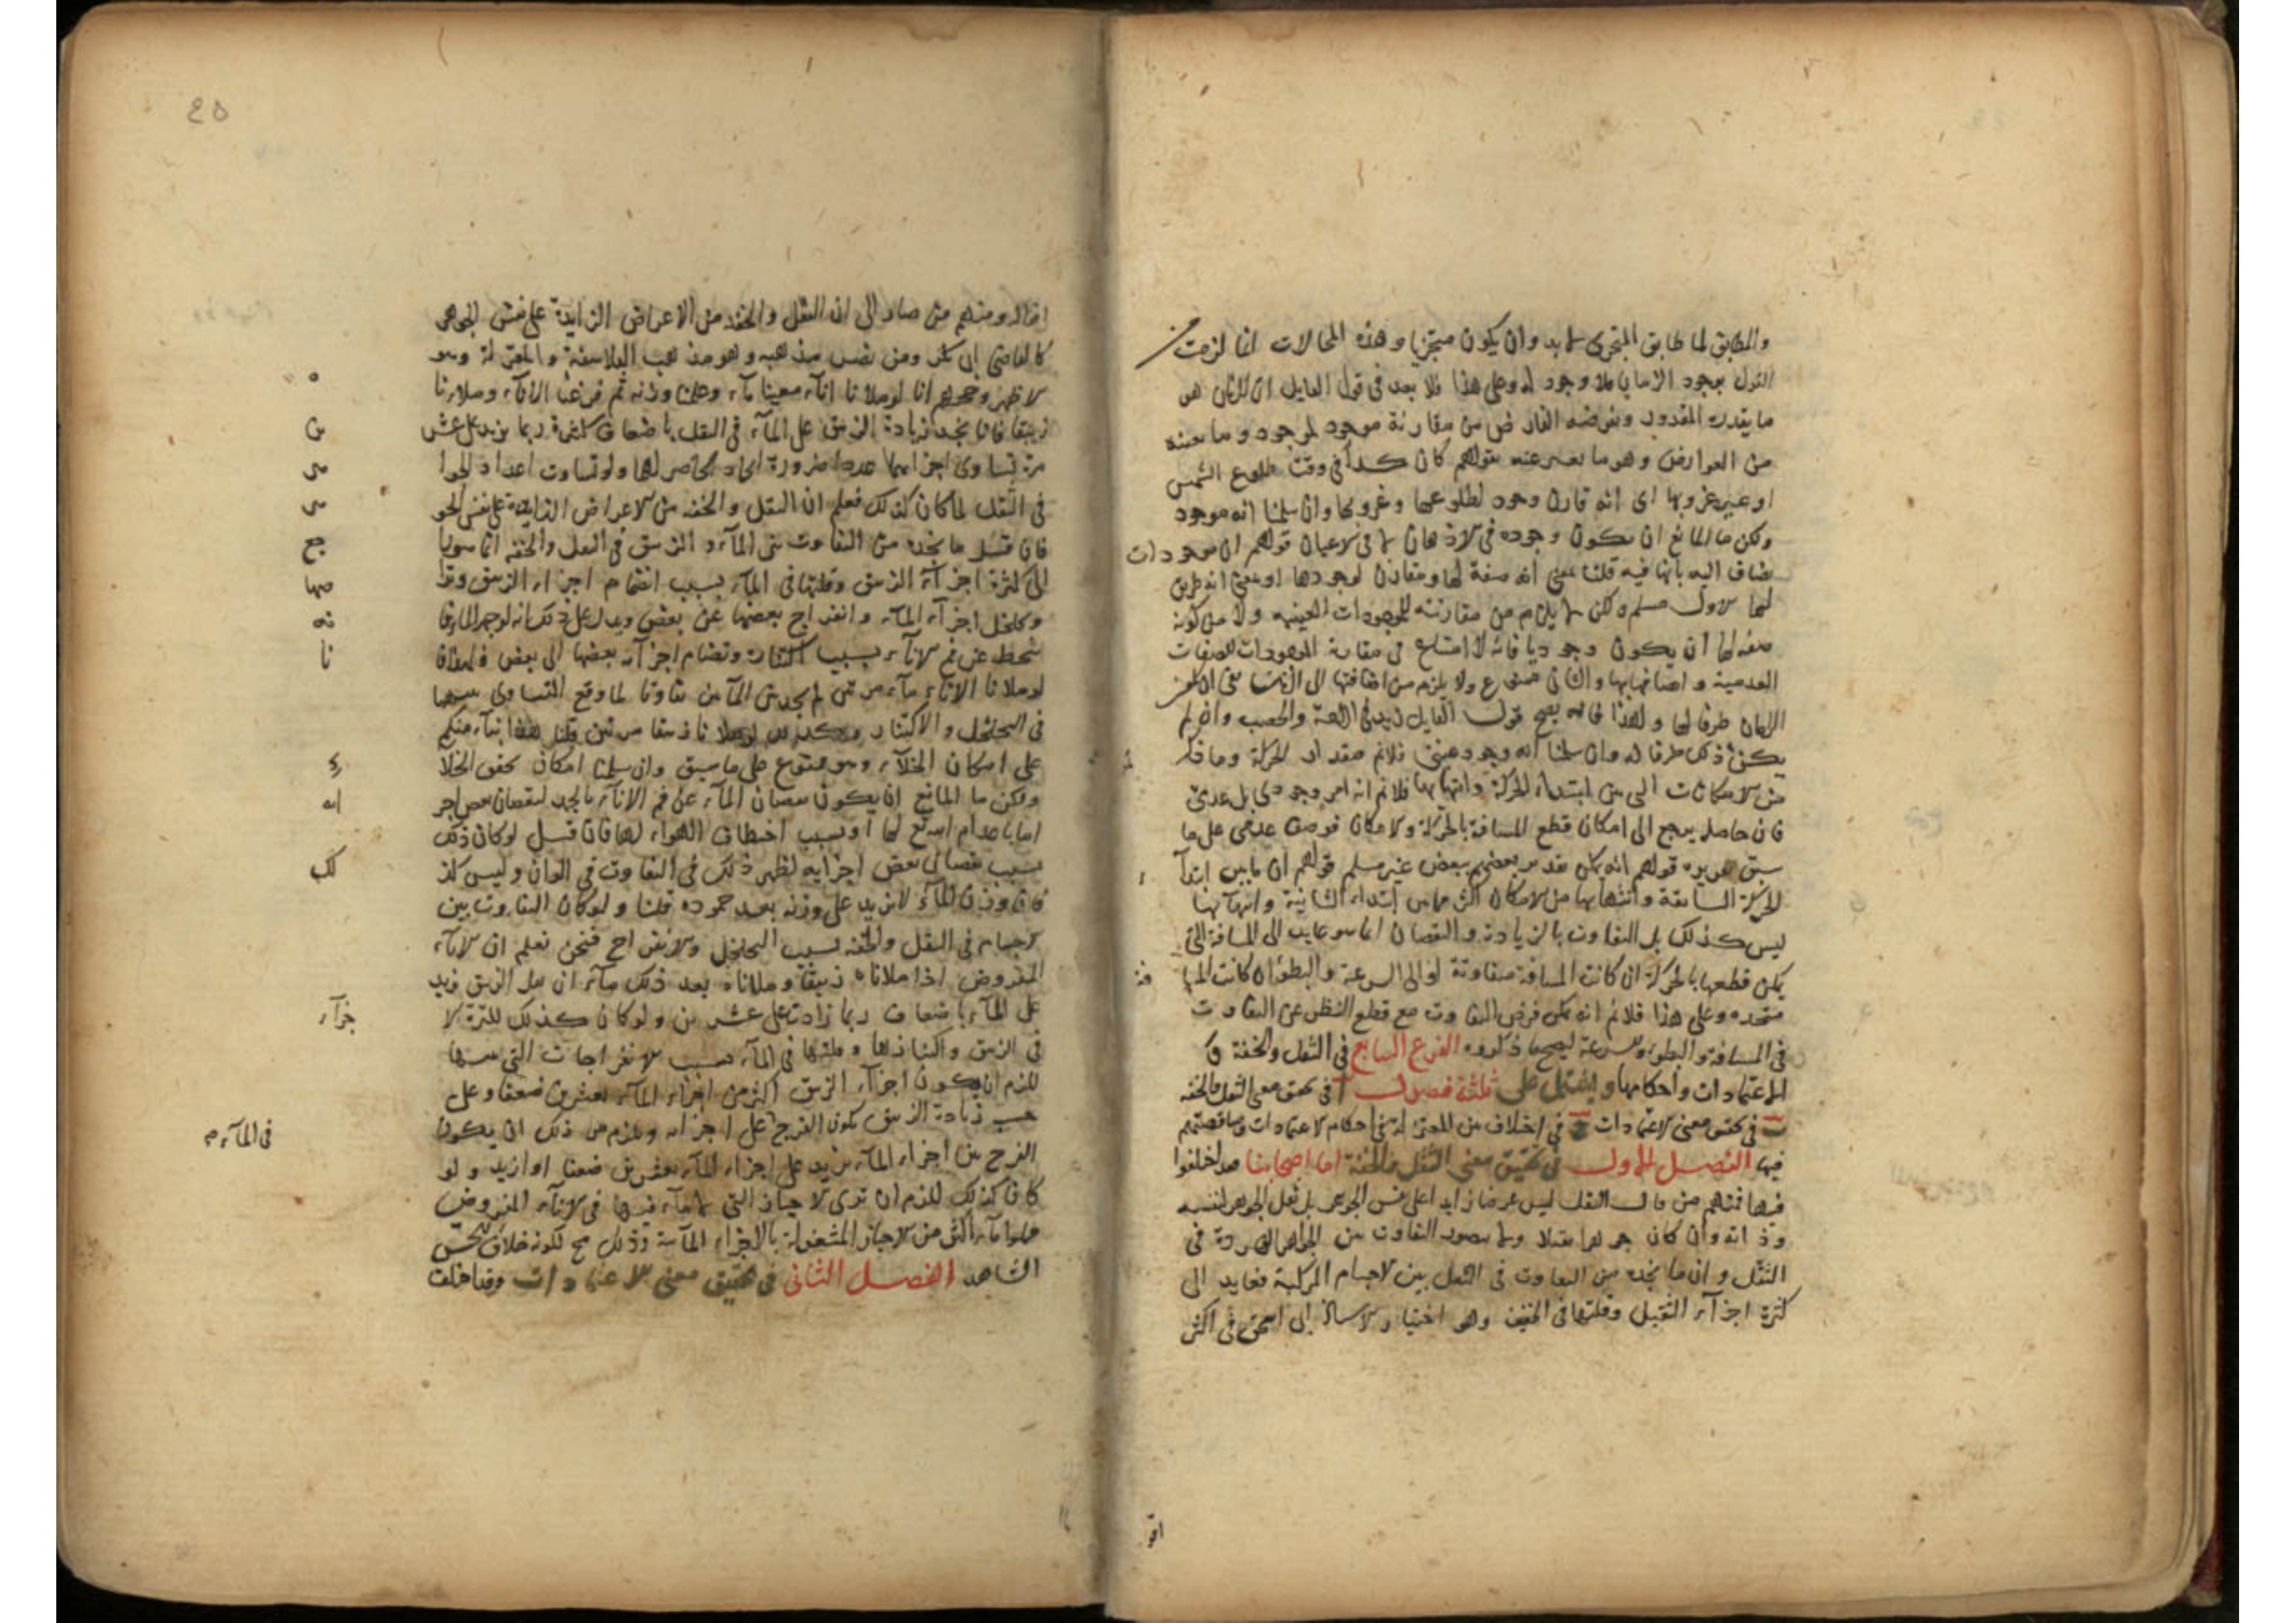 والمطابق لما طابق المتجزى لا بد وان يكون متجزيا وهذه المحالات انما لزمت من
القول بوجود الازمان ولا وجود له وعلى هذا فلا بعد فى قول القايل ان الزمان هو
ما يقدره المقدر ويفرضه الفارض من مقارنة موجود لموجود وما
من العوارض وهو ما يعبر عنه بقولهم كان كذا فى وقت طلوع الشمس
او حين غروبها اى انه قارن وجود لطلوعها وغروبها وان سلمنا انه موجود
ولكن ما المانع ان يكون وجوده فى الاذهان لا فى الاعيان قولهم ان الموجودات
تضاف اليه بانها فيه قلنا بمعنى انه صفة لها ومقارن لوجودها او بمعنى انه ظرف
لها الاول مسلم ولكن لا يلزم من مقارنته للموجودات العينية ولا من كونه
صفة لها ان يكون وجوديا فانه لا امتناع فى مقارنة الموجودات للصفات
العدمية واتصافها بها والثانى ممنوع ولا يلزم من اضافتها الى الزمان بفى ان يكون
الزمان ظرفا لها ولهذا فانه يصح قول القايل زيد فى الراحة والخصب وان لم
يكن ذلك ظرفا له وان سلمنا انه وجود عينى فلا نم مقدار الحركة وما قيل
من الامكانات التى بين ابتداء الحركة وانتهايها فلا نم انه امر وجودى بل عدمى
فان حاصله يرجع الى امكان قطع المسافة بالحركة والامكان فوصف عدمى على ما
سبق تقريره قولهم انه يمكن تقدير بعضهم ببعض غير مسلم قولهم ان ما بين ابتدآء
الحركة السابقة وانتهايها من الامكان اكثر مما بين ابتداء الثانية وانتهآيها
ليس كذلك بل التفاوت بالزيادة والنقصان انما هو عايد الى المسافة التى
يمكن قطعها بالحركة ان كانت المسافة متفاوتة او الى السرعة والبطؤ ان كانت المسافة
متحده وعلى هذا فلا نم انه يمكن فرض التفاوت مع قطع النظر عن التفاوت
فى المسافة والبطؤ والسرعة ليصح ما ذكروه الفرع السابع فى الثقل والخفة و
الاعتمادات واحكامها ويشتمل على ثلثة فصول آ فى تحقيق معنى الثقل والخفه
ب فى تحقيق معنى الاعتمادات ج فى اختلاف بين المعتزلة فى احكام الاعتمادات ومناقضتهم
فيها الفصل الاول فى تحقيق معنى الثقل والخفة اما اصحابنا فقد اختلفوا
فيها فمنهم من قال الثقل ليس عرضا زايدا على نفس الجوهر بل ثقل الجوهر لنفسه
وذاته وان كان جوهرا ثقيلا ولا يتصور التفاوت بين الجواهر الفردة فى
الثقل وان ما نجده من التفاوت فى الثقل بين الاجسام المركبة فعايد الى
كثرة اجزآء الثقيل وقلتها فى الخفيف وهو اختيار الاستاذ ابى اسحق فى اكثر
اقو
٤٥
اقواله ومنهم من صار الى ان الثقل والخفه من الاعراض الزايدة على نفس الجوهر
كالقاضى ابى بكر ومن نصر مذهبه وهو مذهب الفلاسفة والمعتزلة وهو
الاظهر وحجتهم انا لو ملانا انآء معينا مآء وعلمنا وزنه ثم فرغنا الانآء وملاناه
زيبقا فانا نجد زيادة الزيبق على المآء فى الثقل باضعاف كثيرة ربما يزيد على عشرين
مرة تساوى اجزايهما عددا ضرورة اتحاد الحاصر لهما ولو تساوت اعداد الجواهر
فى الثقل لما كان كذلك فعلم ان الثقل والخفه من الاعراض الزايدة على نفس الجوهر
فان قيل ما نجده من التفاوت بين المآء و الزيبق فى الثقل والخفه انما هو راجع
الى كثرة اجزآء الزيبق وقلتها فى المآء بسبب انضمام اجزاء الزيبق وتراصها
وتخلخل اجزآء المآء وانفراج بعضها عن بعض ويدل على ذلك انه لو جمد الماء فانه
ينحط عن فم الانآء بسبب اكتنازه وتضام اجزآئه بعضها الى بعض ولهذا فانا
لو ملانا الانآء مآء مرتين لم نجد بين المآءين تفاوتا لما وقع التساوى بينهما
فى التخلخل والاكتناز وكذلك لو ملانا زيبقا مرتين قلنا هذا بنآء منكم
على امكان الخلآء وهو ممنوع على ما سبق وان سلمنا امكان تحقق الخلاء
ولكن ما المانع ان يكون نقصان المآء عن فم الانآء بالجمد لنقصان بعض اجزائه
اما باعدام الله تع لها او بسبب اختطاف الهواء لها فان قيل لو كان ذلك
بسبب نقصان بعض اجزايه لظهر ذلك فى التفاوت فى الوزان وليس كذلك
فان وزن المآء لا يزيد على وزنه بعد جموده قلنا ولو كان التفاوت بين
الاجسام فى الثقل والخفه بسبب التخلخل والانفراج فنحن نعلم ان الانآء
المفروض اذا ملاناه زيبقا وملاناه بعد ذلك مآء ان ثقل الزيبق يزيد
على المآء باضعاف ربما زادت على عشرين ولو كان كذلك لكثرة الاجزآء
فى الزيبق واكتنازها وقلتها فى المآء بسبب الانفراجات التى بينها
للزم ان يكون اجزآء الزيبق اكثر من اجزاء المآء بعشرين ضعفا وعلى
حسب زيادة الزيبق يكون الفرج على اجزائه ويلزم من ذلك ان يكون
فى المآء
الفرج بين اجزاء المآء يزيد على اجزاء المآء بعشرين ضعفا او ازيد ولو
كان كذلك للزم ان ترى الاحياز التى لا مآء فيها فى الانآء المفروض
مملوا مآء اكثر من الاحياز المشغولة بالاجزاء المآئية وذلك مح لكونه خلاف الحس
الشاهد الفصل الثانى فى تحقيق معنى الاعتمادات وقد اختلف